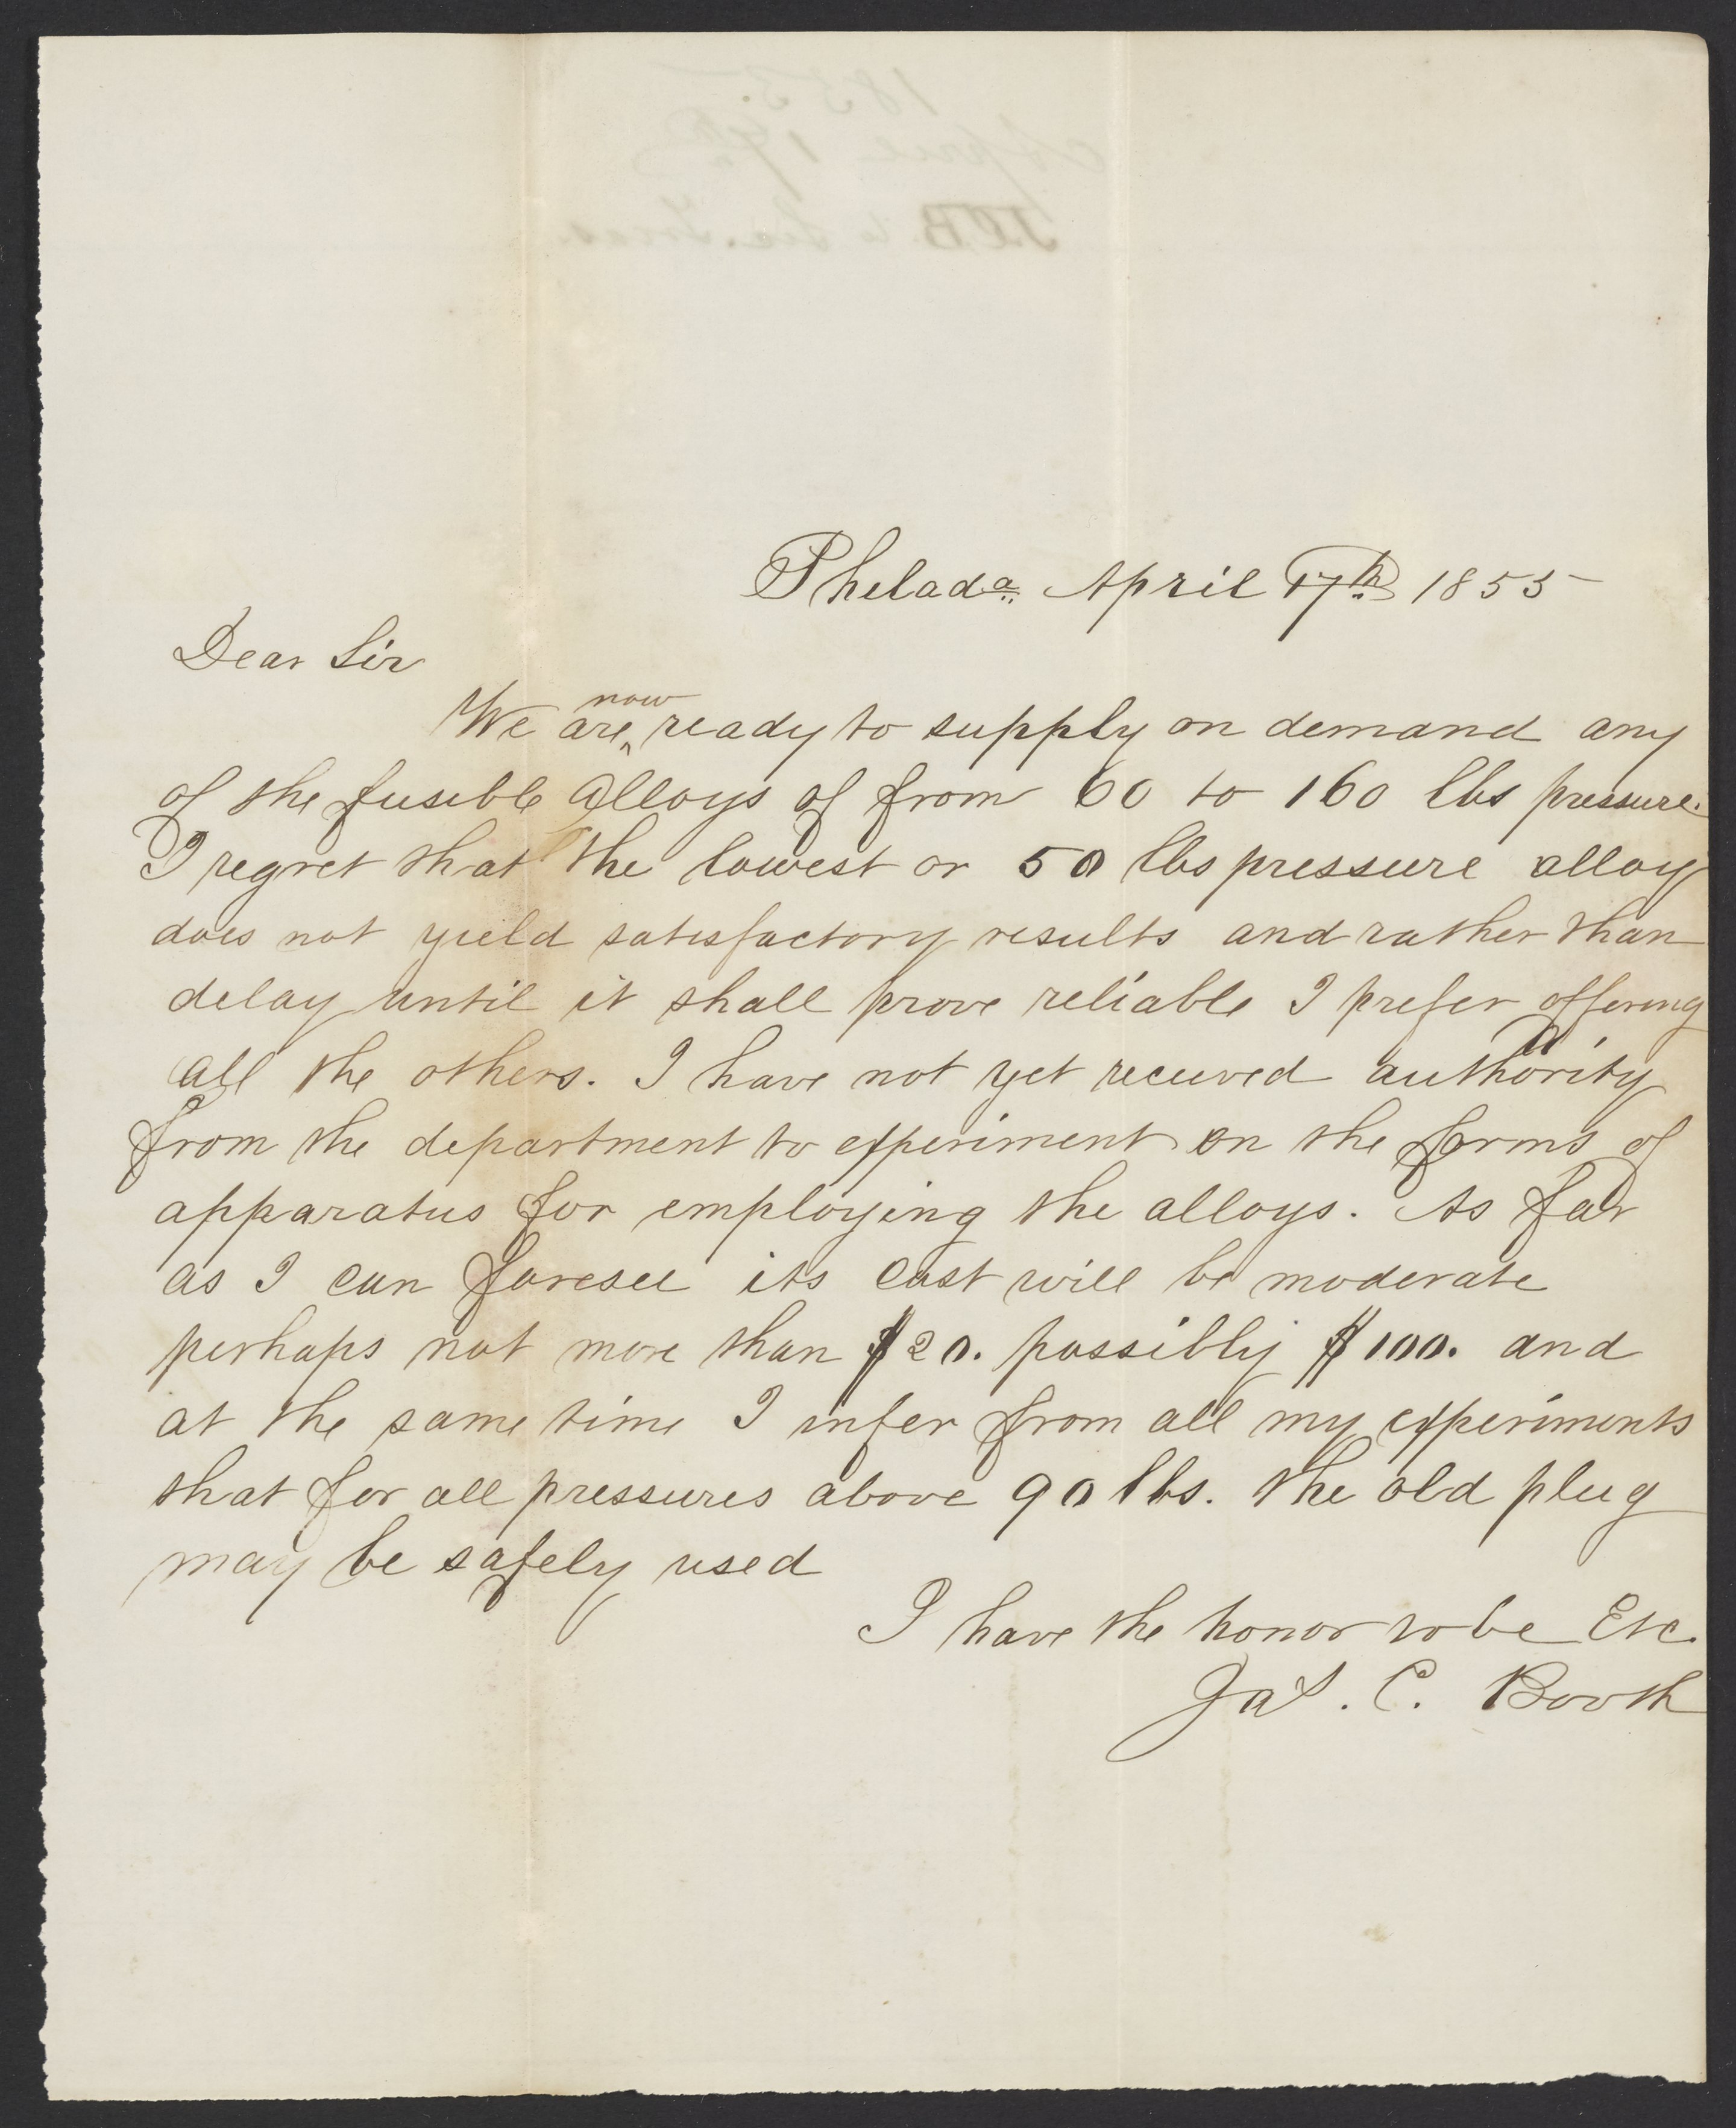 Philada. April 17th. 1855
Dear Sir
We are now ready to supply on demand any
of the fusible alloys of from 60 to 160 lbs pressure.
I regret that the lowest or 50 lbs pressure alloy
does not yield satisfactory results and rather than
delay until it shall prove reliable I prefer offering
all the others. I have not yet received authority
from the department to experiment on the forms of
apparatus for employing the alloys. As far
as I can foresee its cost will be moderate
perhaps not more than $20. possibly $100. and
at the same time I infer from all my experiments
that for all pressures above 90 lbs. the old plug
may be safely used
I have the honor to be Etc.
Jas. C. Booth